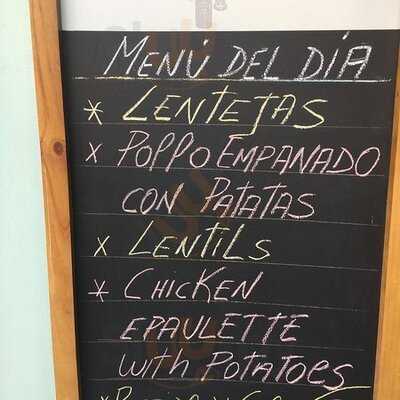 MENÚ DEL DÍA
* LENTEJAS
x POPPO EMPANADO
CON PATATAS
x LENTILS
* CHICKEN
EPAULETTE
with POTATOES